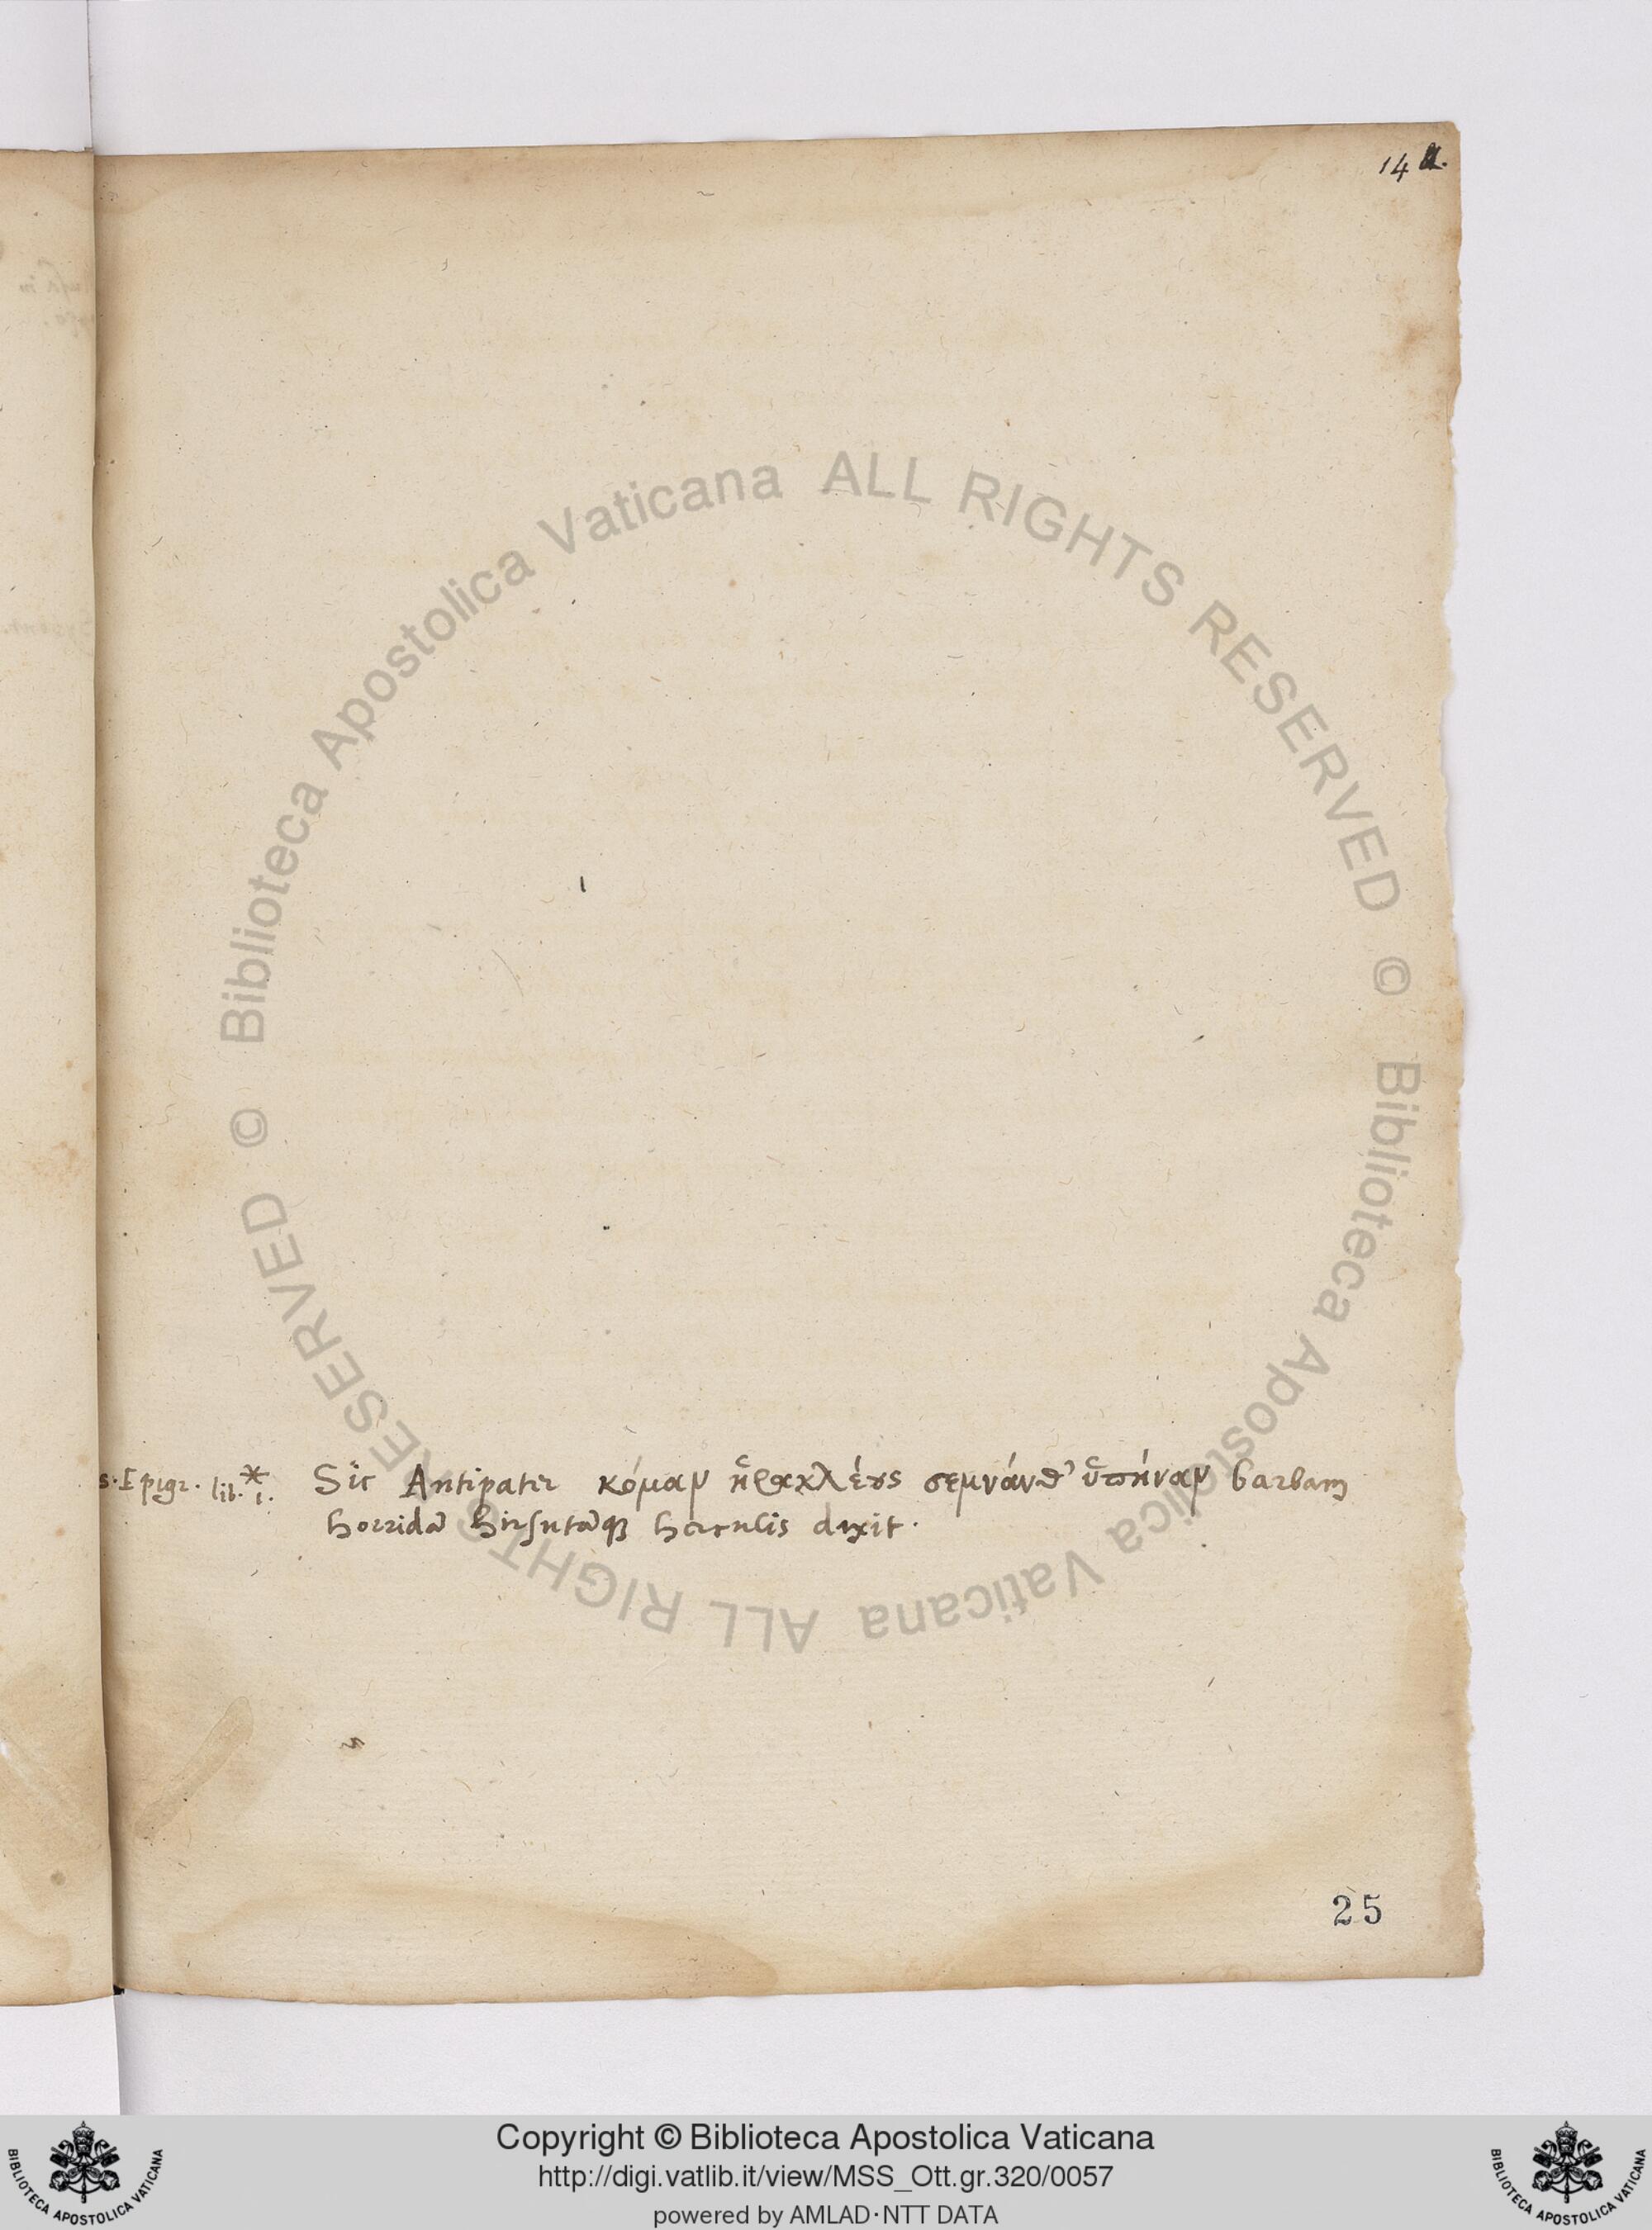 14 a.
s. Epigr. lib. * i.
Sic Antipater κόμαν ἡρακλέους σεμνάνθ' ὑπήναν barbam
horridā hirsutāq3 herculis dixit.
25
© Biblioteca Apostolica Vaticana ALL RIGHTS RESERVED © Biblioteca Apostolica Vaticana ALL RIGHTS RESERVED
Copyright © Biblioteca Apostolica Vaticana
http://digi.vatlib.it/view/MSS_Ott.gr.320/0057
powered by AMLAD·NTT DATA
BIBLIOTECA APOSTOLICA VATICANA
BIBLIOTECA APOSTOLICA VATICANA